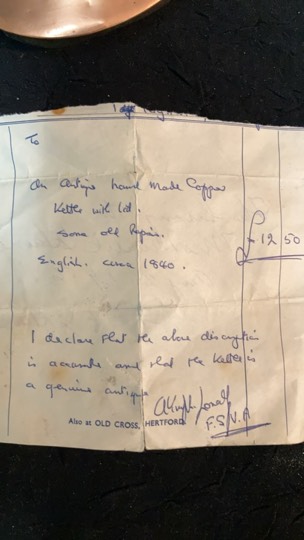 To
An antique hand Made Copper
Kettle with lid.
Some old Repair.
£12 50
English. circa 1840.
I declare that the above description
is accurate and that the Kettle is
a genuine antique
F.S.V.A
Also at OLD CROSS, HERTFORD